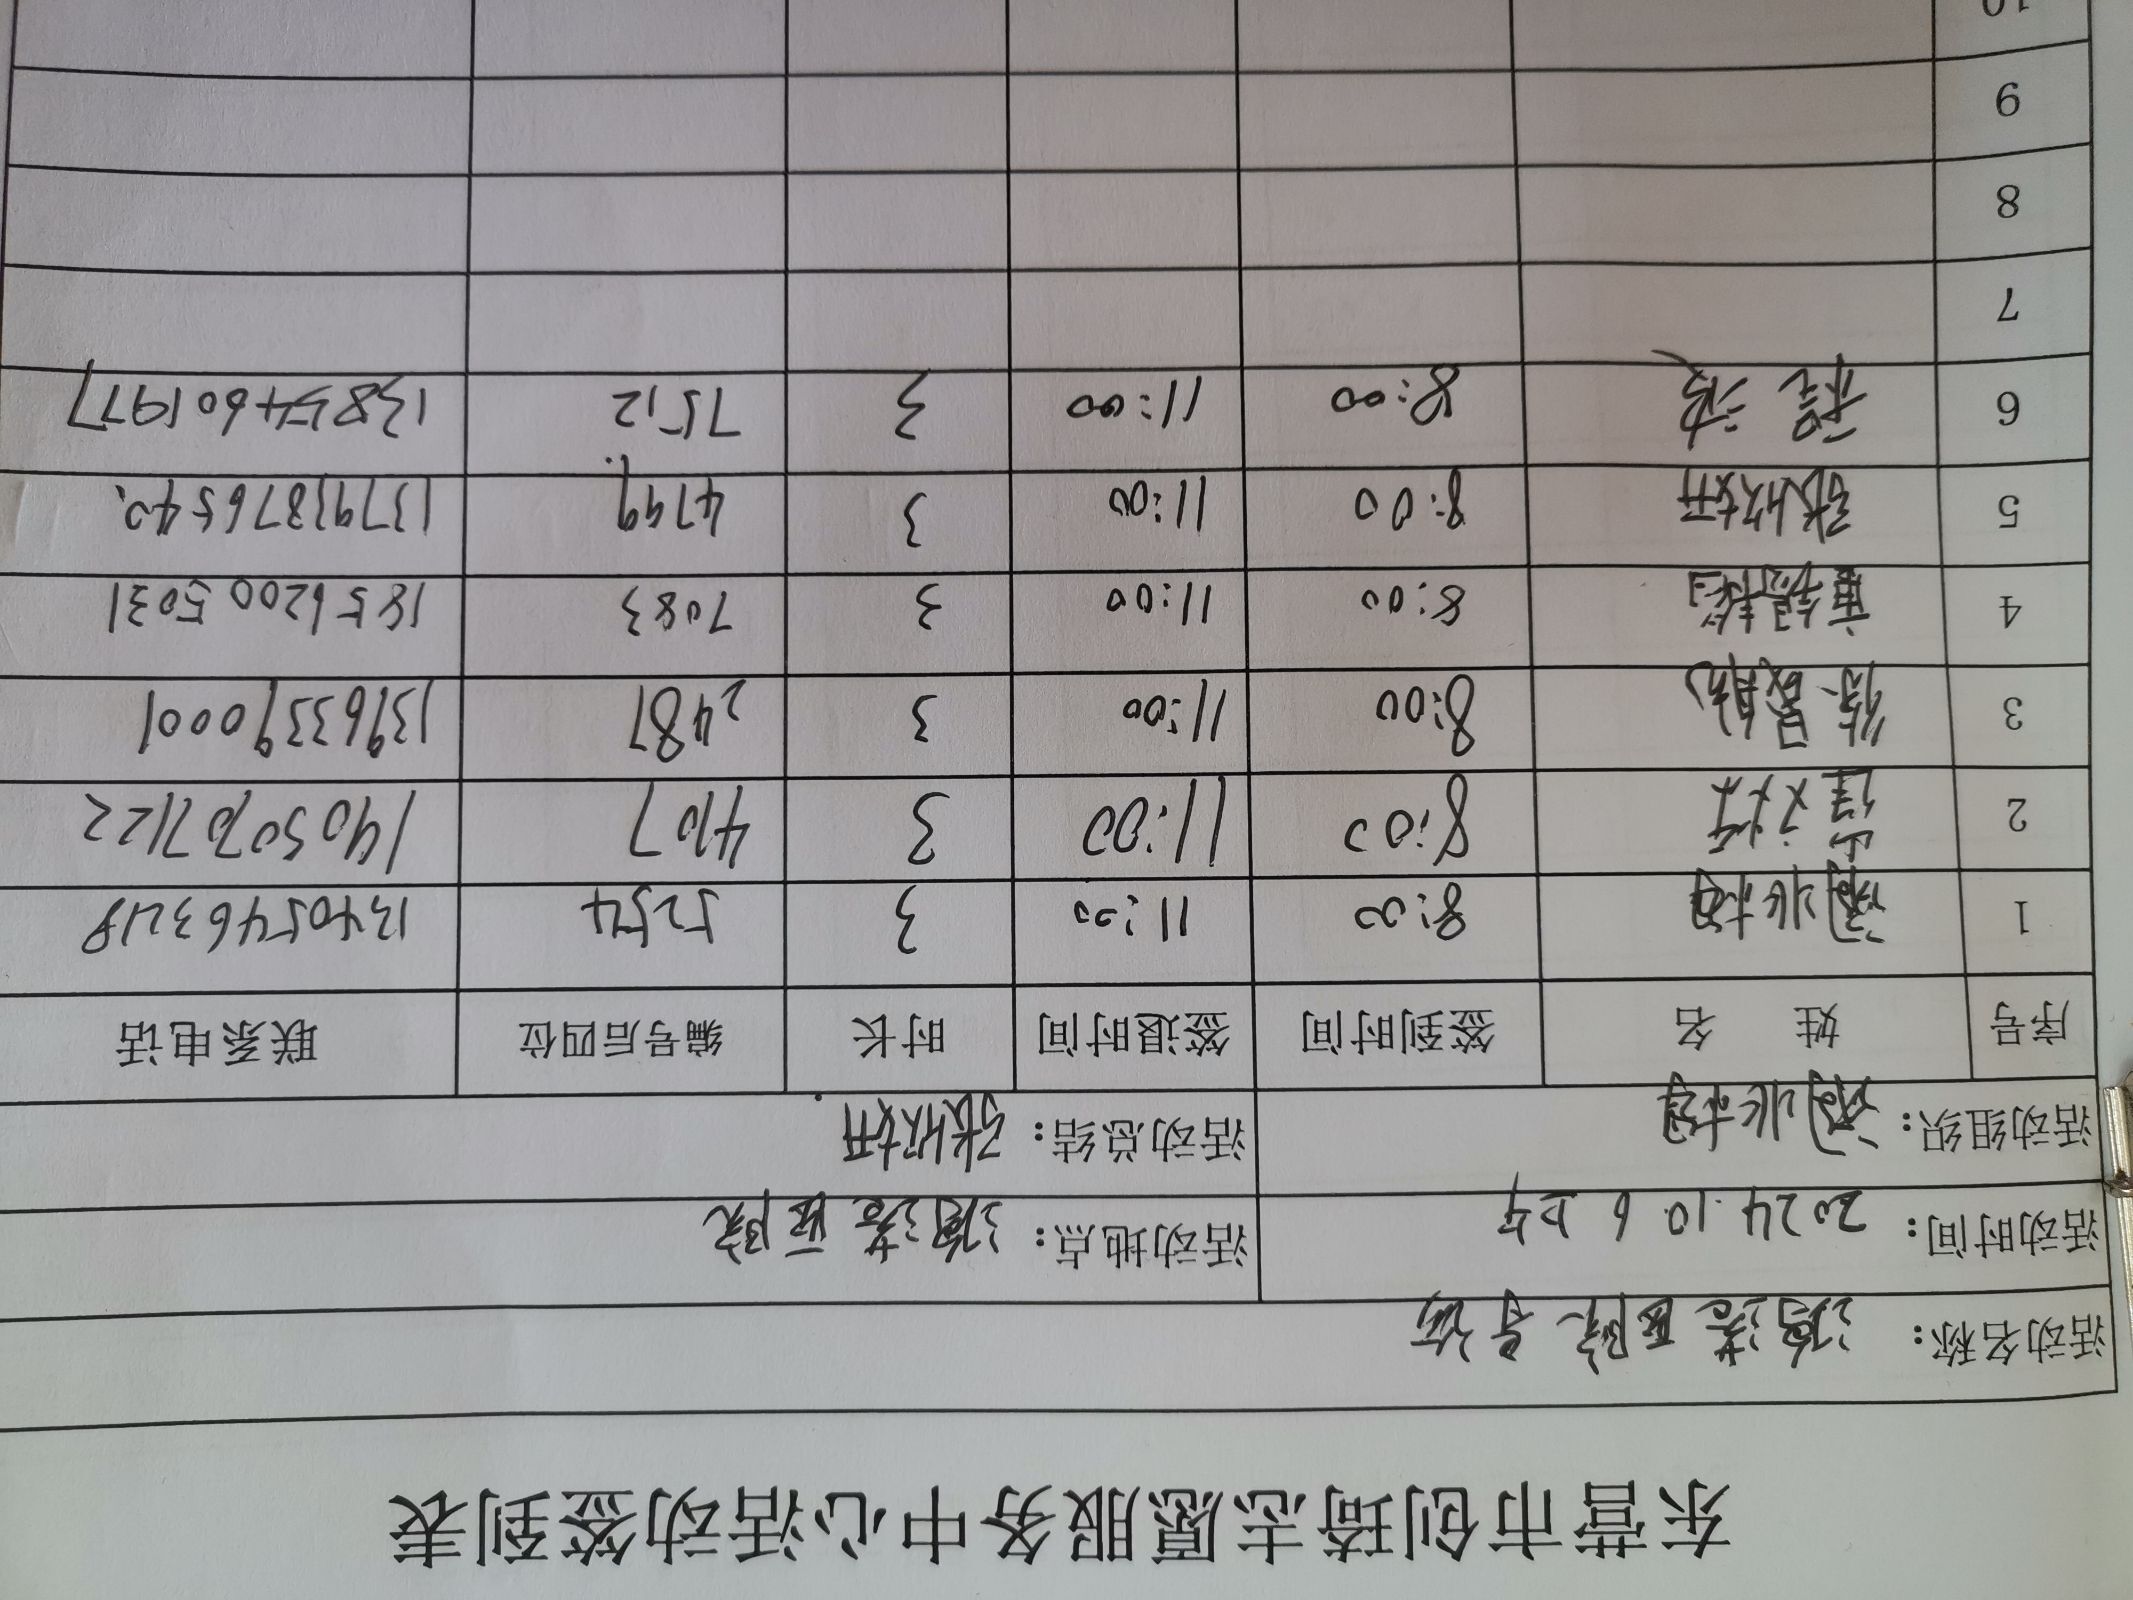 东营市创琦志愿服务中心活动签到表
活动名称：鸿港医院导诊
活动时间：2024.10.6上午 活动地点：鸿港医院
活动组织： 活动总结：张姣妍
序号 姓 名 签到时间 签退时间 时长 编号后四位 联系电话
1 8:00 11:00 3 5254 13405463218
2 8:00 11:00 3 4107 14050707122
3 8:00 11:00 3 2487 13963390001
4 8:00 11:00 3 7083 18562005031
5 张姣妍 8:00 11:00 3 4799 13791876540
6 8:00 11:00 3 7512 13854601977
7
8
9
10